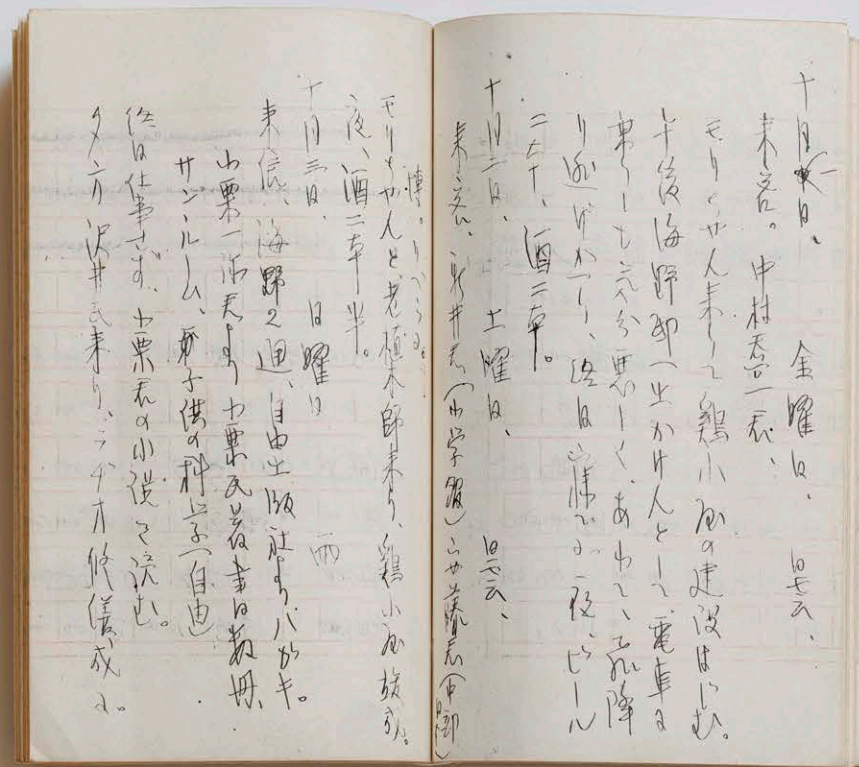 十月一日、 金曜日、 曇、
来客。中村君
モリちゃん来りて鶏小屋の建設はじむ。
午後海野邸へ出かけんとして、電車に
乗りしも気分悪しく、あわてて飛降
り逃げかへり、終日寝てゐる。夜、ビール
二本、酒二本。
十月二日、 土曜日、 曇、
来客、新井君(小学館)
モリちゃんと老植木師来り、鶏小屋旋成。
夜、酒二本半。
十月三日、 日曜日 雨
来信、海野2通、自由出版社よりハガキ。
小栗 君より小栗氏著書数冊、
サンルーム、子供の科学(自由)
終日仕事せず、小栗君の小説を読む。
夕方沢井氏来り、ラヂオ修繕成る。